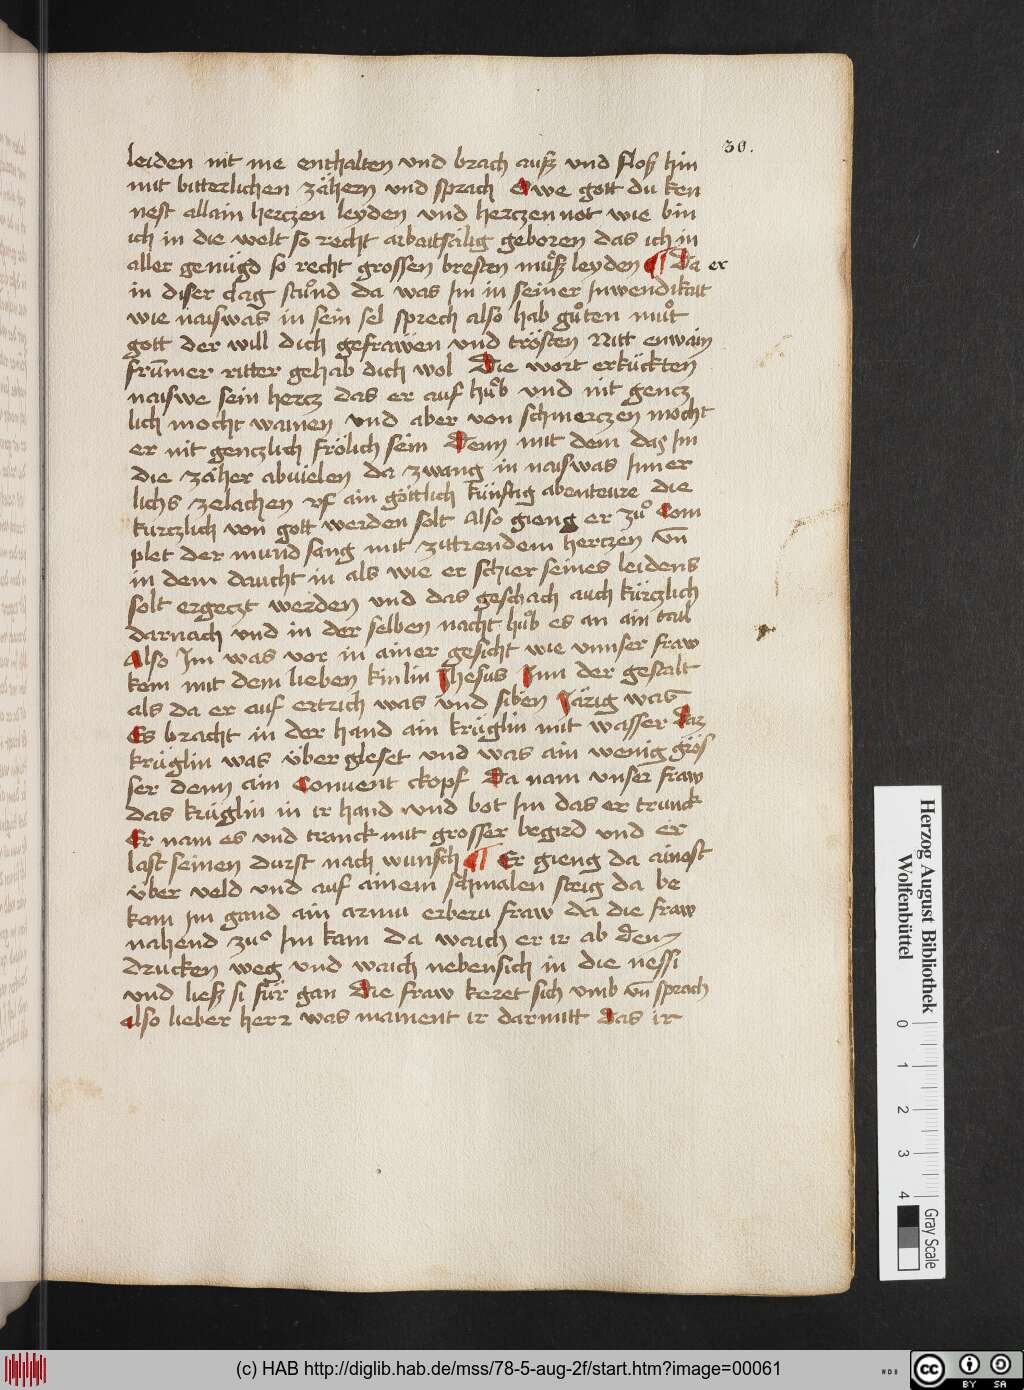 30.
leiden nit me enthalten vnd brach ausz vnd flosz hin
mit bitterlichen zähern vnd sprach Owe gott du ken
nest allain herczen leyden vnd herczen not wie bin
ich in die welt so recht arbaitsälig geboren das ich in
aller genügd so recht grossen bresten müsz leyden ¶ Da er
in diser clag stůnd da was im in seiner Inwendikait
wie naiswas in sein sel sprech also hab gůten můt
gott der will dich gefräwen vnd trösten Nitt enwain
frümer ritter gehab dich wol Die wort erkückten
naiswe sein hercz das er auf hůb vnd nit gencz
lich mocht wainen vnd aber von schmerczen mocht
er nit genczlich frölich sein Denn mit dem das Im
die zäher abvielen da zwang in naiswas Inner
lichs zelachen vf ain göttlich künftig abenteure die
kurczlich von gott werden solt Also gieng er zů Com
plet der mund sang mit zittrendem herczen vn̄
in dem daucht in als wie er schier seines leidens
solt ergeczt werden vnd das geschach auch kürczlich
darnach vnd in der selben nacht hůb es an ain tail
Also Im was vor in ainer gesicht wie vnnser fraw
kem mit dem lieben kinlin Jhesus Inn der gestalt
als da er auf ertrich was vnd siben Järig was
Es bracht in der hand ain krüglin mit wasser Daz
krüglin was übergleset vnd was ain wenig grös
ser denn ain Conuent ckopf Da nam vnser fraw
das krüglin in ir hand vnd bot Im das er trunck
Er nam es vnd tranck mit grosser begird vnd er
last seinen durst nach wunsch ¶ Er gieng da ainest
über veld vnd auf ainem schmalen steig da be
kam im gand ain armu erberu fraw da die fraw
nahend zu Im kam Da waich er ir ab den
drucken weg vnd waich nebensich in die nessi
vnd liesz si für gan Die fraw keret sich vmb vn̄ sprach
also lieber herr was mainent ir darmitt Das ir
Herzog August Bibliothek
Wolfenbüttel
0 1 2 3 4
Gray Scale
(c) HAB http://diglib.hab.de/mss/78-5-aug-2f/start.htm?image=00061
WDB
cc BY SA